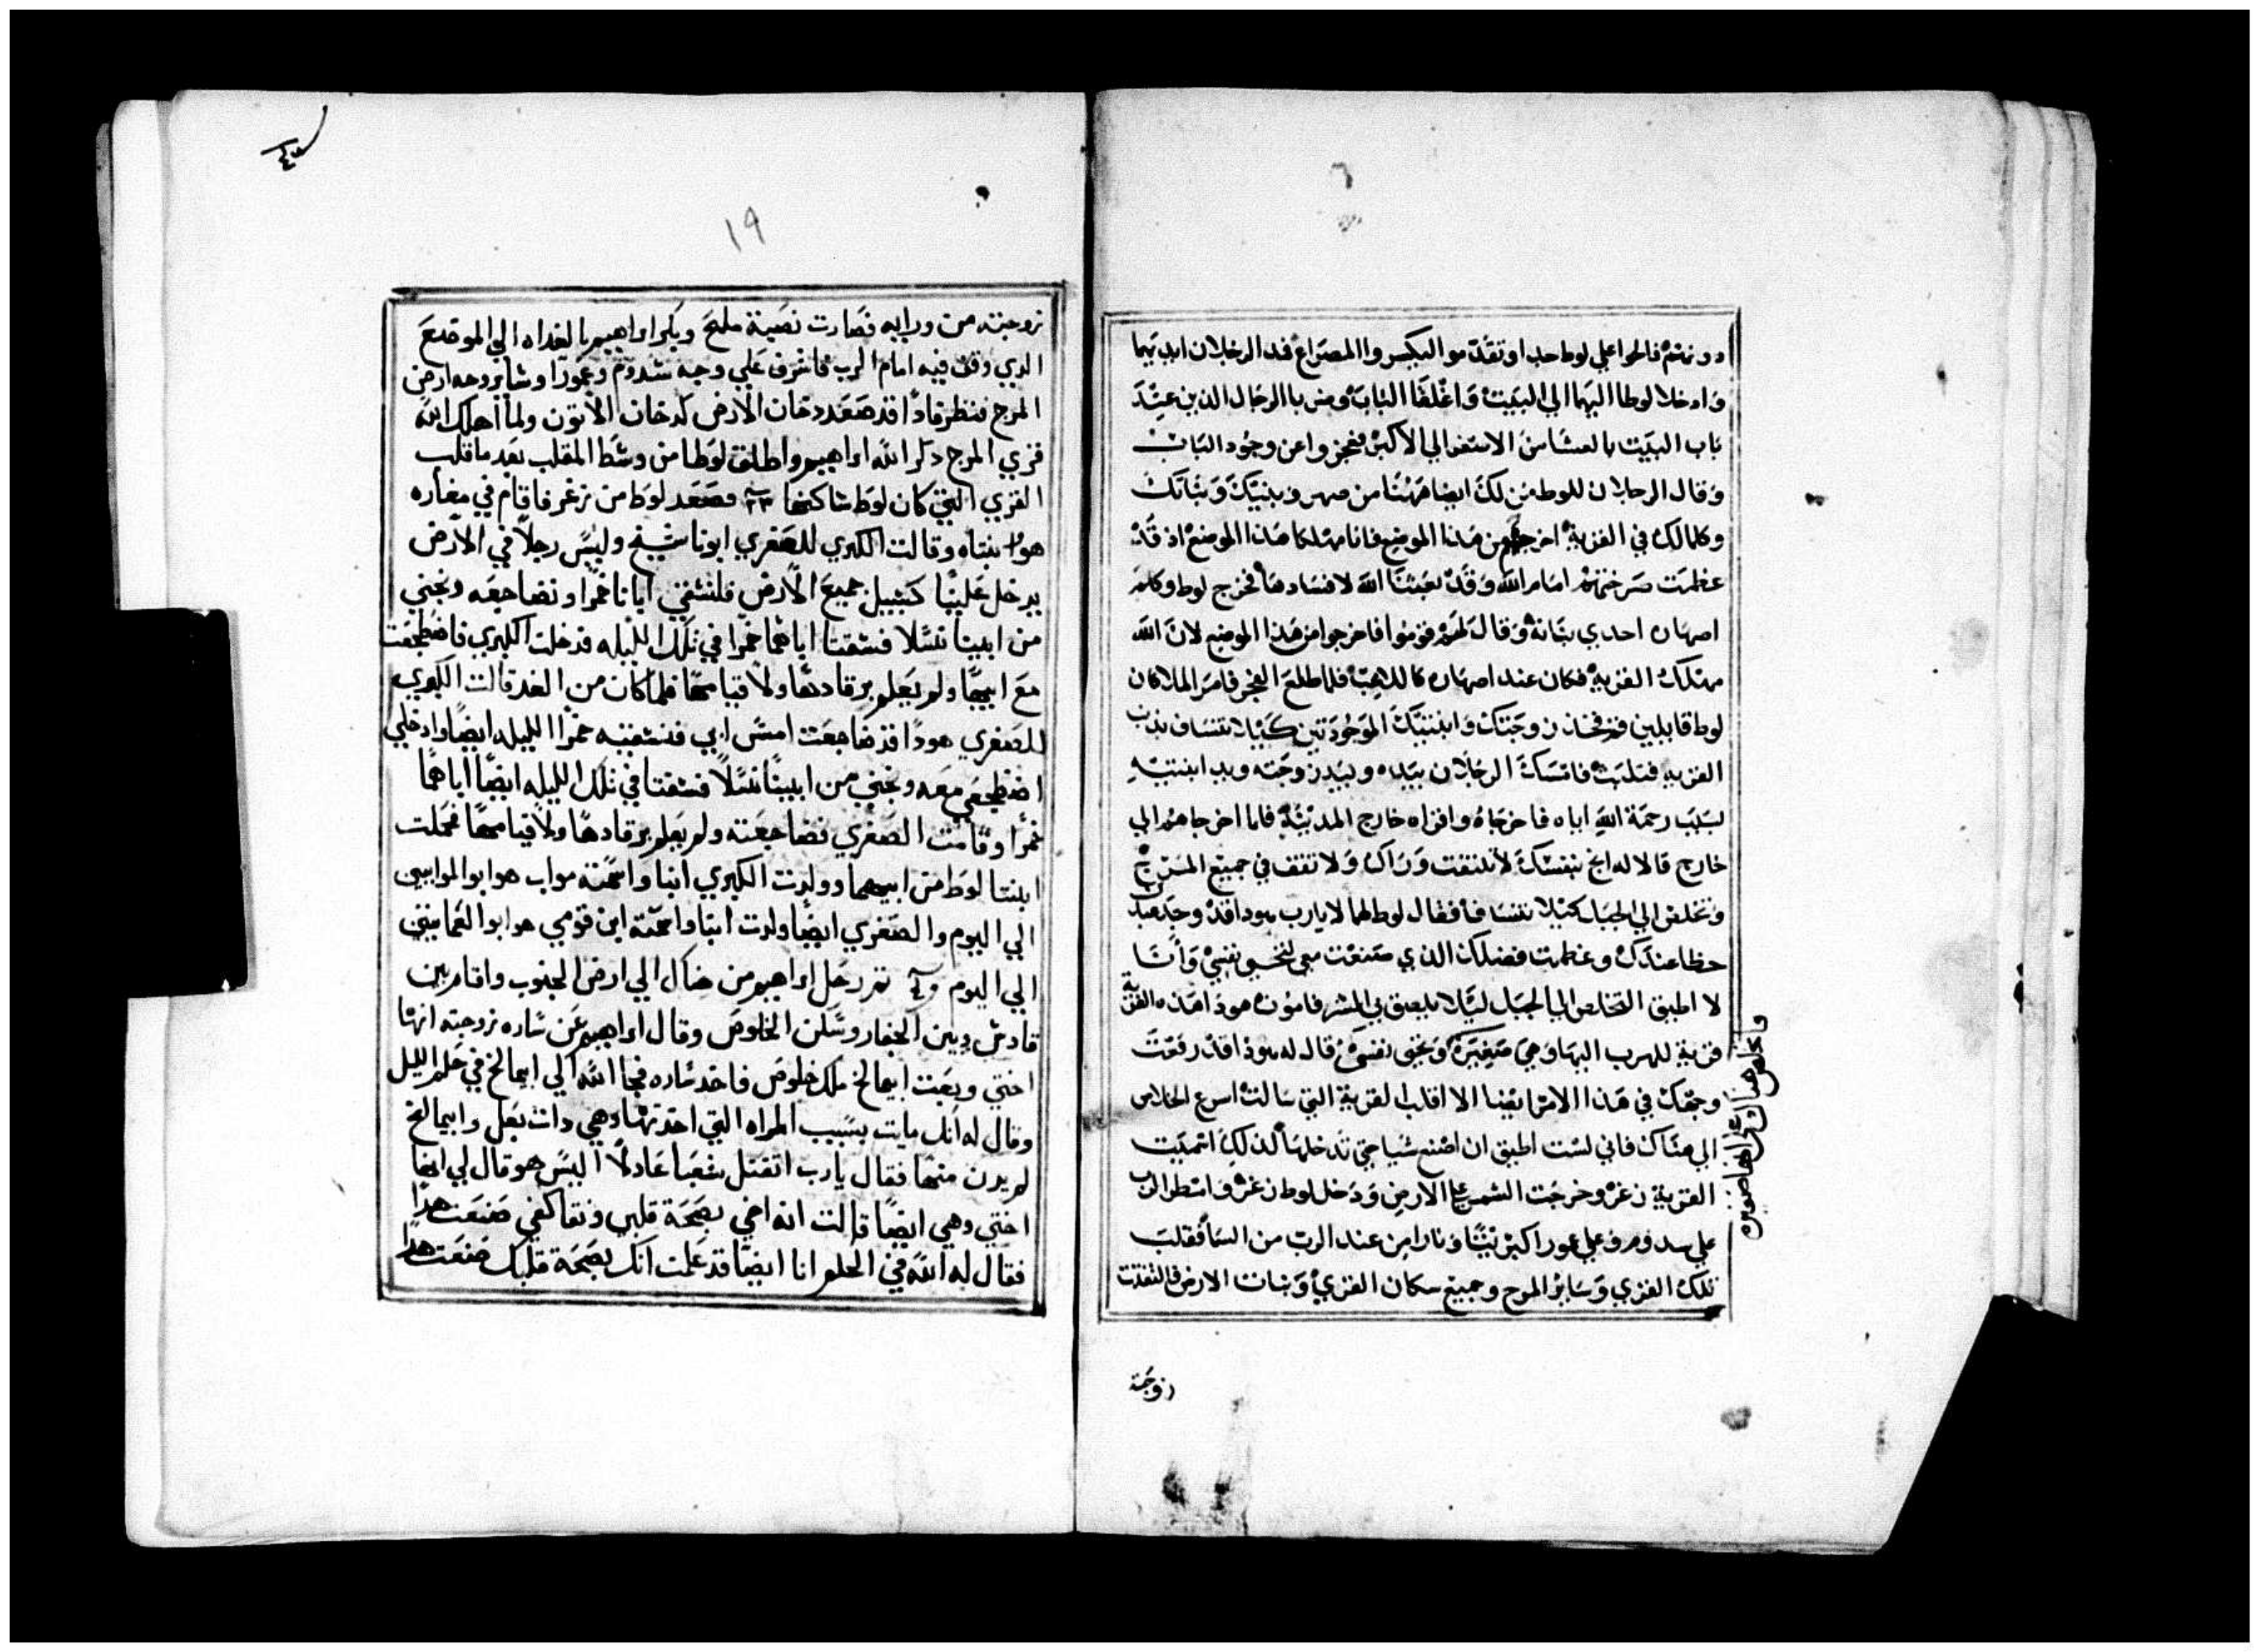 دونهم فالحوا علي لوط جدا وتقدموا ليكسروا المصراع فمد الرجلان ايديهما
وادخلا لوطا اليهما الي البيت واغلقا الباب وضربا الرجال الذين عند
باب البيت بالعشا من الاصغر الي الاكبر فعجزوا عن وجود الباب
وقال الرجلان للوط من لك ايضا ههنا من صهر وبنيك وبناتك
وكلما لك في القرية اخرجهم من هذا الموضع فانا مهلكا هذا الموضع اذ قد
عظمت صرختهم امام الله وقد بعثنا الله لافسادها فخرج لوط وكلم
اصهاره احدي بناته وقال لهم قوموا فاخرجوا من هذا الموضع لان الله
مهلك القرية فكان عند اصهاره كالملاعب فلما طلع الفجر فامر الملاكان
لوط قايلين قم فخذ زوجتك وابنتيك الموجودتين كيلا تنساف بذنب
القرية فتلبث فامسك الرجلان بيده وبيد زوجته ويد ابنتيه
بسبب رحمة الله اياه فاخرجاه واقراه خارج المدينة فلما اخرجاهم الي
خارج قالا له انج بنفسك لا تلتفت وراك ولا تقف في جميع المرج
وتخلص الي الجبل كيلا تنساف فقال لوط لهما لا يارب هوذا قد وجد عبدك
حظا عندك وعظمت فضلك الذي صنعت معي لتحيي نفسي وانا
لا اطيق التخلص الي الجبل ليلا يلصق بي الشر فاموت هوذا هذه القرية
قرية للهرب اليها وهي صغيرة وتحيي نفسي قال له هوذا قد رفعت
وجهك في هذا الامر ايضا الا اقلب القرية التي سالت اسرع اخلص
الي هناك فاني لست اطيق ان اصنع شيا حتي تدخلها لذلك اسميت
القرية زغر وخرجت الشمس علي الارض ودخل لوط زغر وامطر الرب
علي سدوم وعلي عمورا كبريتا ونارا من عند الرب من السما فقلب
تلك القري وساير المرج وجميع سكان القري ونبات الارض فالتفتت
زوجته
١٩
زوجته من ورايه فصارت نصبة ملح وبكر ابراهيم بالغداه الي الموضع
الدي وقف فيه امام الرب فاشرف علي وجه سدوم وعمورا وساير وجه ارض
المرج فنظر فادا قد صعد دخان الارض كدخان الاتون ولما اهلك الله
قري المرج دكر الله ابراهيم واطلق لوطا من وسط المقلب بعد ما قلب
القري التي كان لوط ساكنها فصعد لوط من زغر فاقام في مغاره
هو وابنتاه وقالت الكبري للصغري ابونا شيخ وليس رجلا في الارض
يدخل علينا كسبيل جميع الارض فلنسقي ابانا خمرا ونضاجعه ونحيي
من ابينا نسلا فسقتا اباهما خمرا في تلك الليله فدخلت الكبري فاضطجعت
مع ابيها ولم يعلم برقادها ولا قيامها فلما كان من الغد قالت الكبري
للصغري هودا قد ضاجعت امس ابي فنسقيه خمرا الليله ايضا وادخلي
اضطجعي معه ونحيي من ابينا نسلا فسقتا في تلك الليله ايضا اباهما
خمرا وقامت الصغري فضاجعته ولم يعلم برقادها ولا قيامها فحملت
ابنتا لوط من ابيهما وولدت الكبري ابنا واسمته مواب هو ابو الموابيين
الي اليوم والصغري ايضا ولدت ابنا واسمته ابن قومي هو ابو العمانيين
الي اليوم ثم رحل ابراهيم من هناك الي ارض الجنوب واقام بين
قادش وبين الجفار وسكن الخلوص وقال ابراهيم عن ساره زوجته انها
اختي وبعت ابيمالخ ملك خلوص فاخد ساره فجا الله الي ابيمالخ في حلم الليل
وقال له انك مايت بسبب المراه التي اخدتها وهي دات بعل وابيمالخ
لم يدن منها فقال يارب اتقتل شعبا عادلا اليس هو قال لي انها
اختي وهي ايضا قالت انه اخي بصحة قلبي ونقا كفي صنعت هدا
فقال له الله في الحلم انا ايضا قد علمت انك بصحة قلبك صنعت هدا